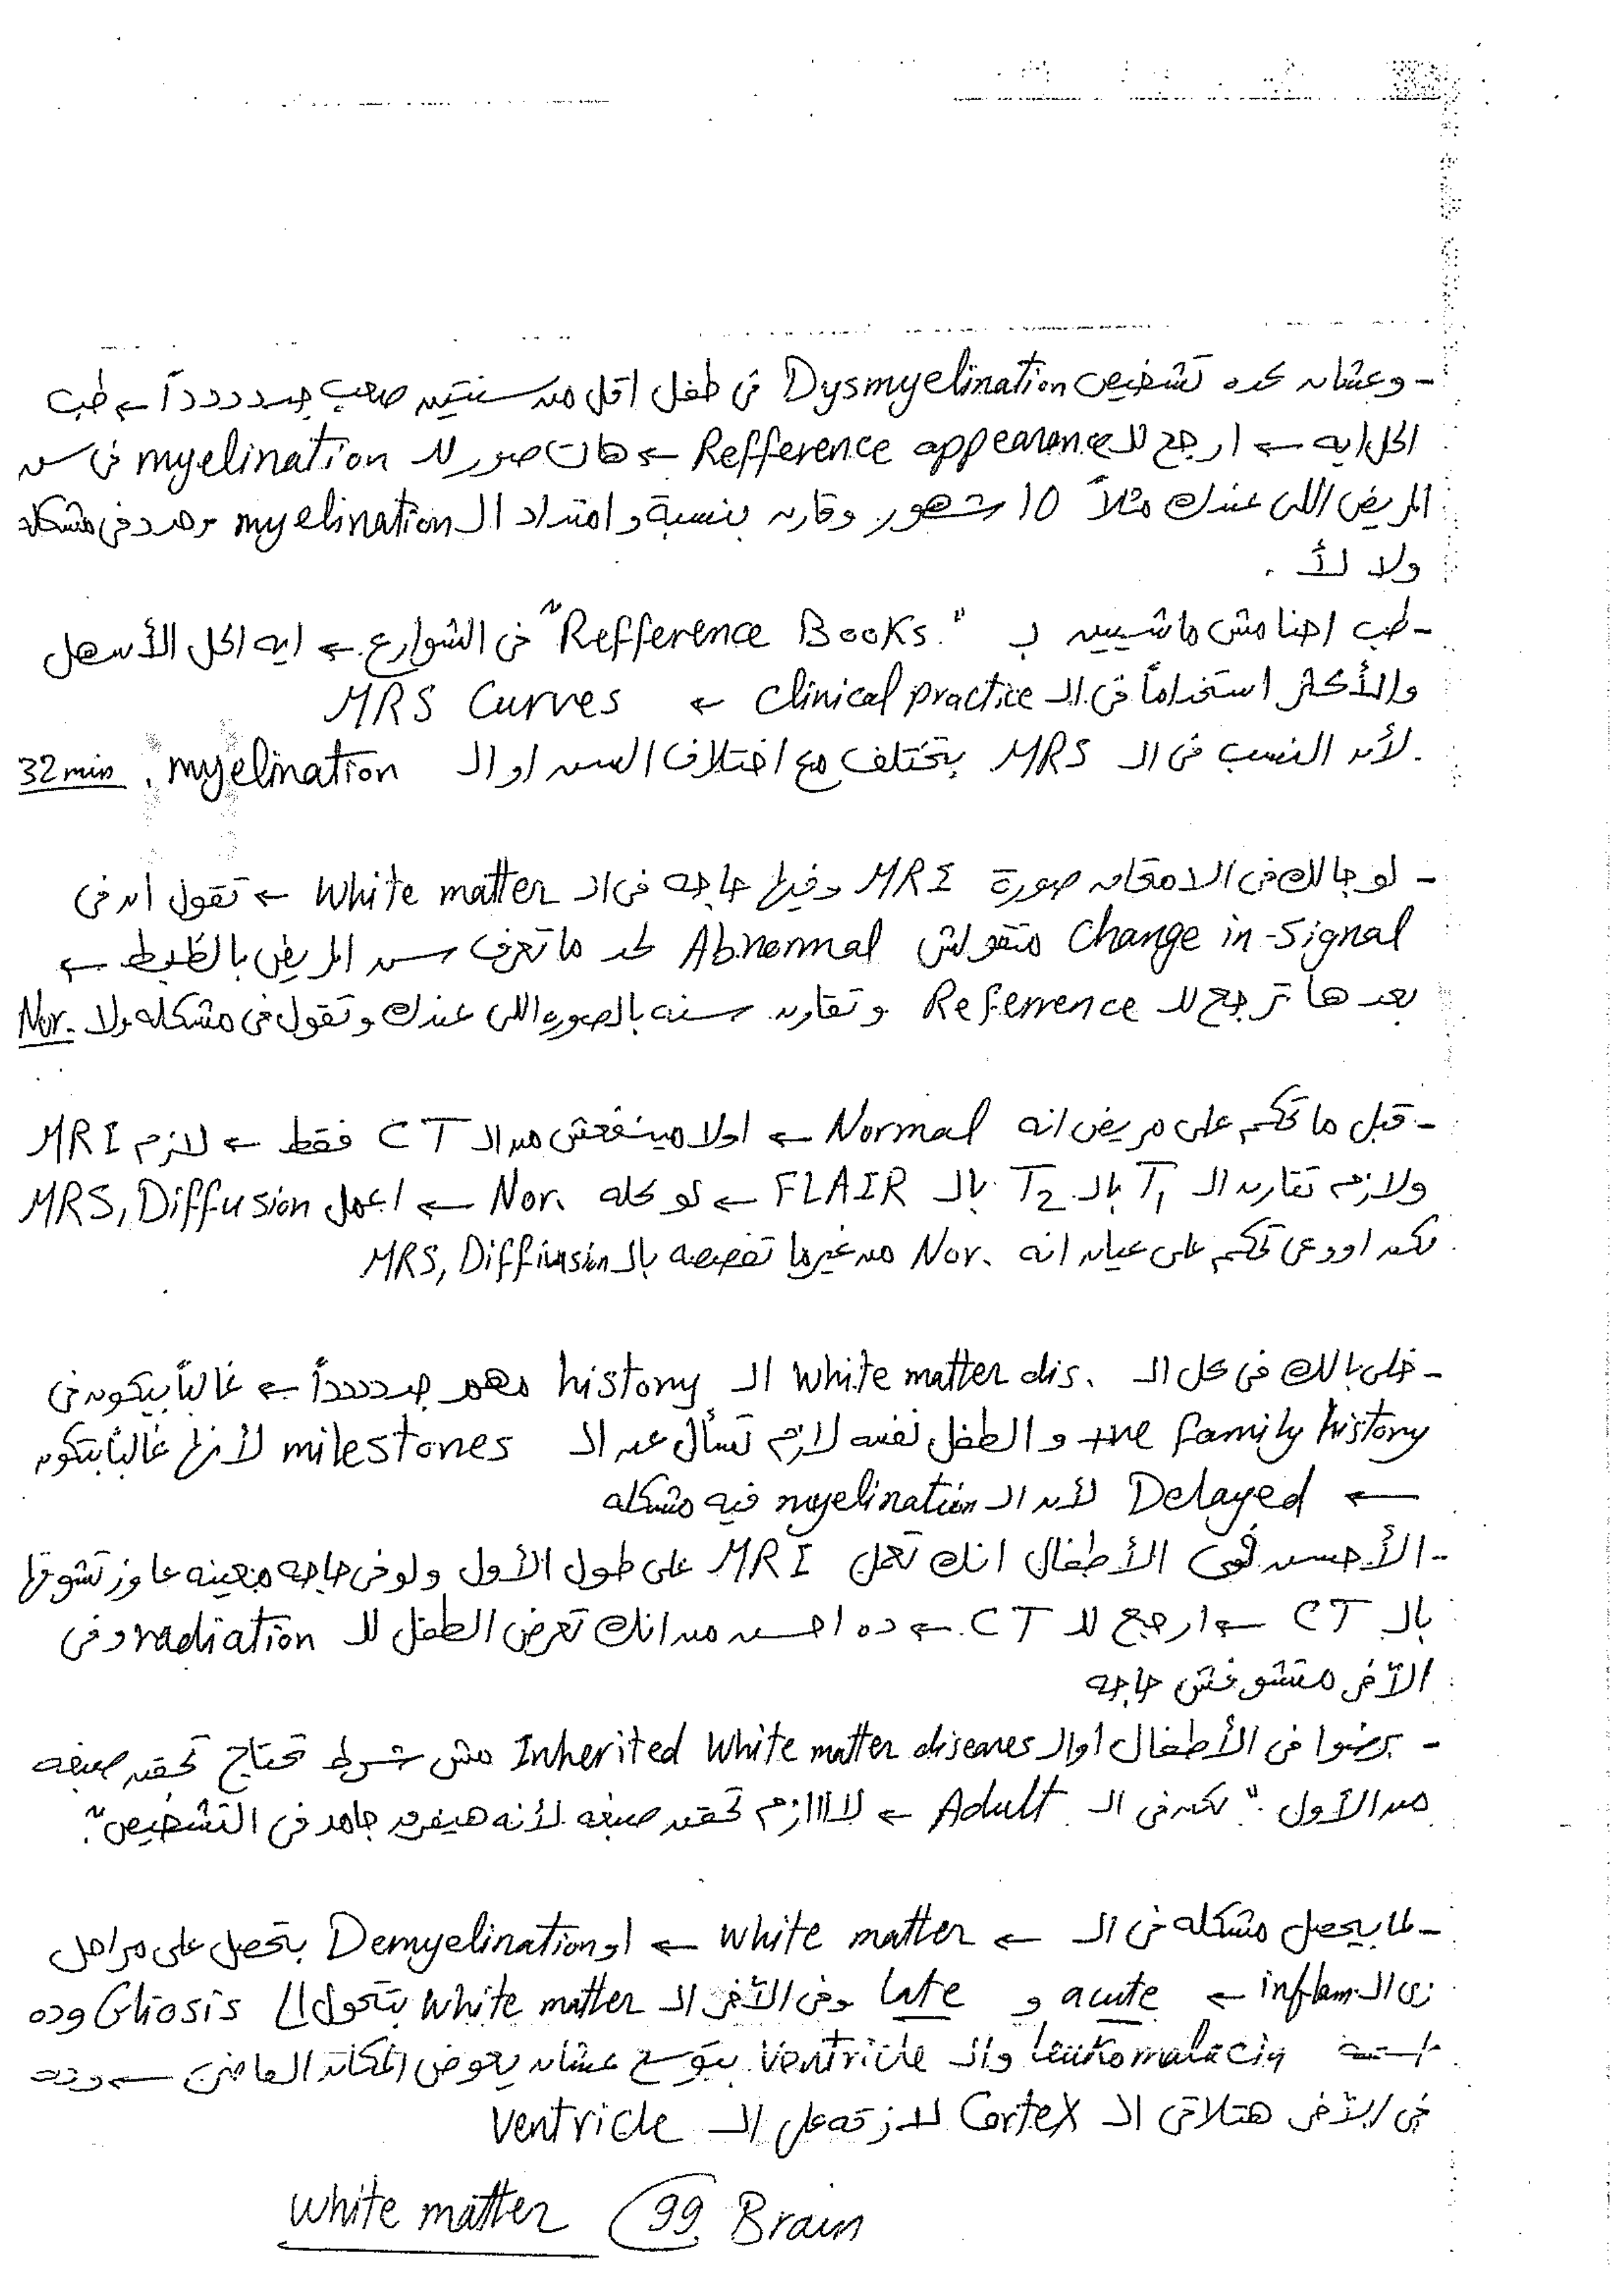 - وعشان كده تشخيص Dysmyelination في طفل اقل من سنتين صعب جدددداً ← طب
الحل ايه ← ارجع للـ Refference appearance ← هات صور للـ myelination في سن
المريض اللى عندك مثلاً 10 شهور وقارن بنسبة و امتداد الـ myelination وحدد في مشكله
ولا لأ .
- طب احنا مش ماشيين بـ "Refference Books." في الشوارع ← ايه الحل الأسهل
والأكثر استخداماً في الـ Clinical practice ← MRS Curves
. لأن النسب في الـ MRS بتختلف مع اختلاف السن او الـ myelination . 32 min
- لو جالك في الامتحان صورة MRI وفيها حاجه في الـ White matter ← تقول ان في
Change in-Signal متقولش Abnormal لحد ما تعرف سن المريض بالظبط ←
بعدها ترجع للـ Referrence وتقارن سنه بالصوره اللى عندك وتقول في مشكله ولا Nor.
- قبل ما تحكم على مريض انه Normal ← اولا مينفعش من الـ CT فقط ← لازم MRI
ولازم تقارن الـ T1 بالـ T2 بالـ FLAIR ← لو كله Nor. ← اعمل MRS, Diffusion
لكن اوعى تحكم على عيان انه Nor. من غير ما تفحصه بالـ MRS, Diffusion
- خلى بالك في كل الـ White matter dis. الـ history مهم جدددداً ← غالباً بيكون في
+ve family history و الطفل نفسه لازم تسأل عن الـ milestones لأنها غالباً بتكون
← Delayed لأن الـ myelination فيه مشكله
- الأحسن في الأطفال انك تعمل MRI على طول الأول ولو في حاجه معينه عاوز تشوفها
بالـ CT ← ارجع للـ CT ← ده احسن من انك تعرض الطفل للـ radiation وفى
الآخر متشوفش حاجه
- برضوا في الأطفال اوالـ Inherited White matter diseases مش شرط تحتاج تحقن صبغه
من الأول . " لكن في الـ Adult ← لااااازم تحقن صبغه لأنه هيفرق جامد في التشخيص".
- لما بيحصل مشكله في الـ ← White matter ← او Demyelination بتحصل على مراحل
زى الـ inflam. ← acute و late وفى الآخر الـ White matter بتتحول الى Gliosis وده
leukomalacia والـ Ventricle بيتوسع عشان يعوض المكان الفاضى ←
في الآخر هتلاقى الـ Cortex لازقه على الـ Ventricle
White matter 99 Brain